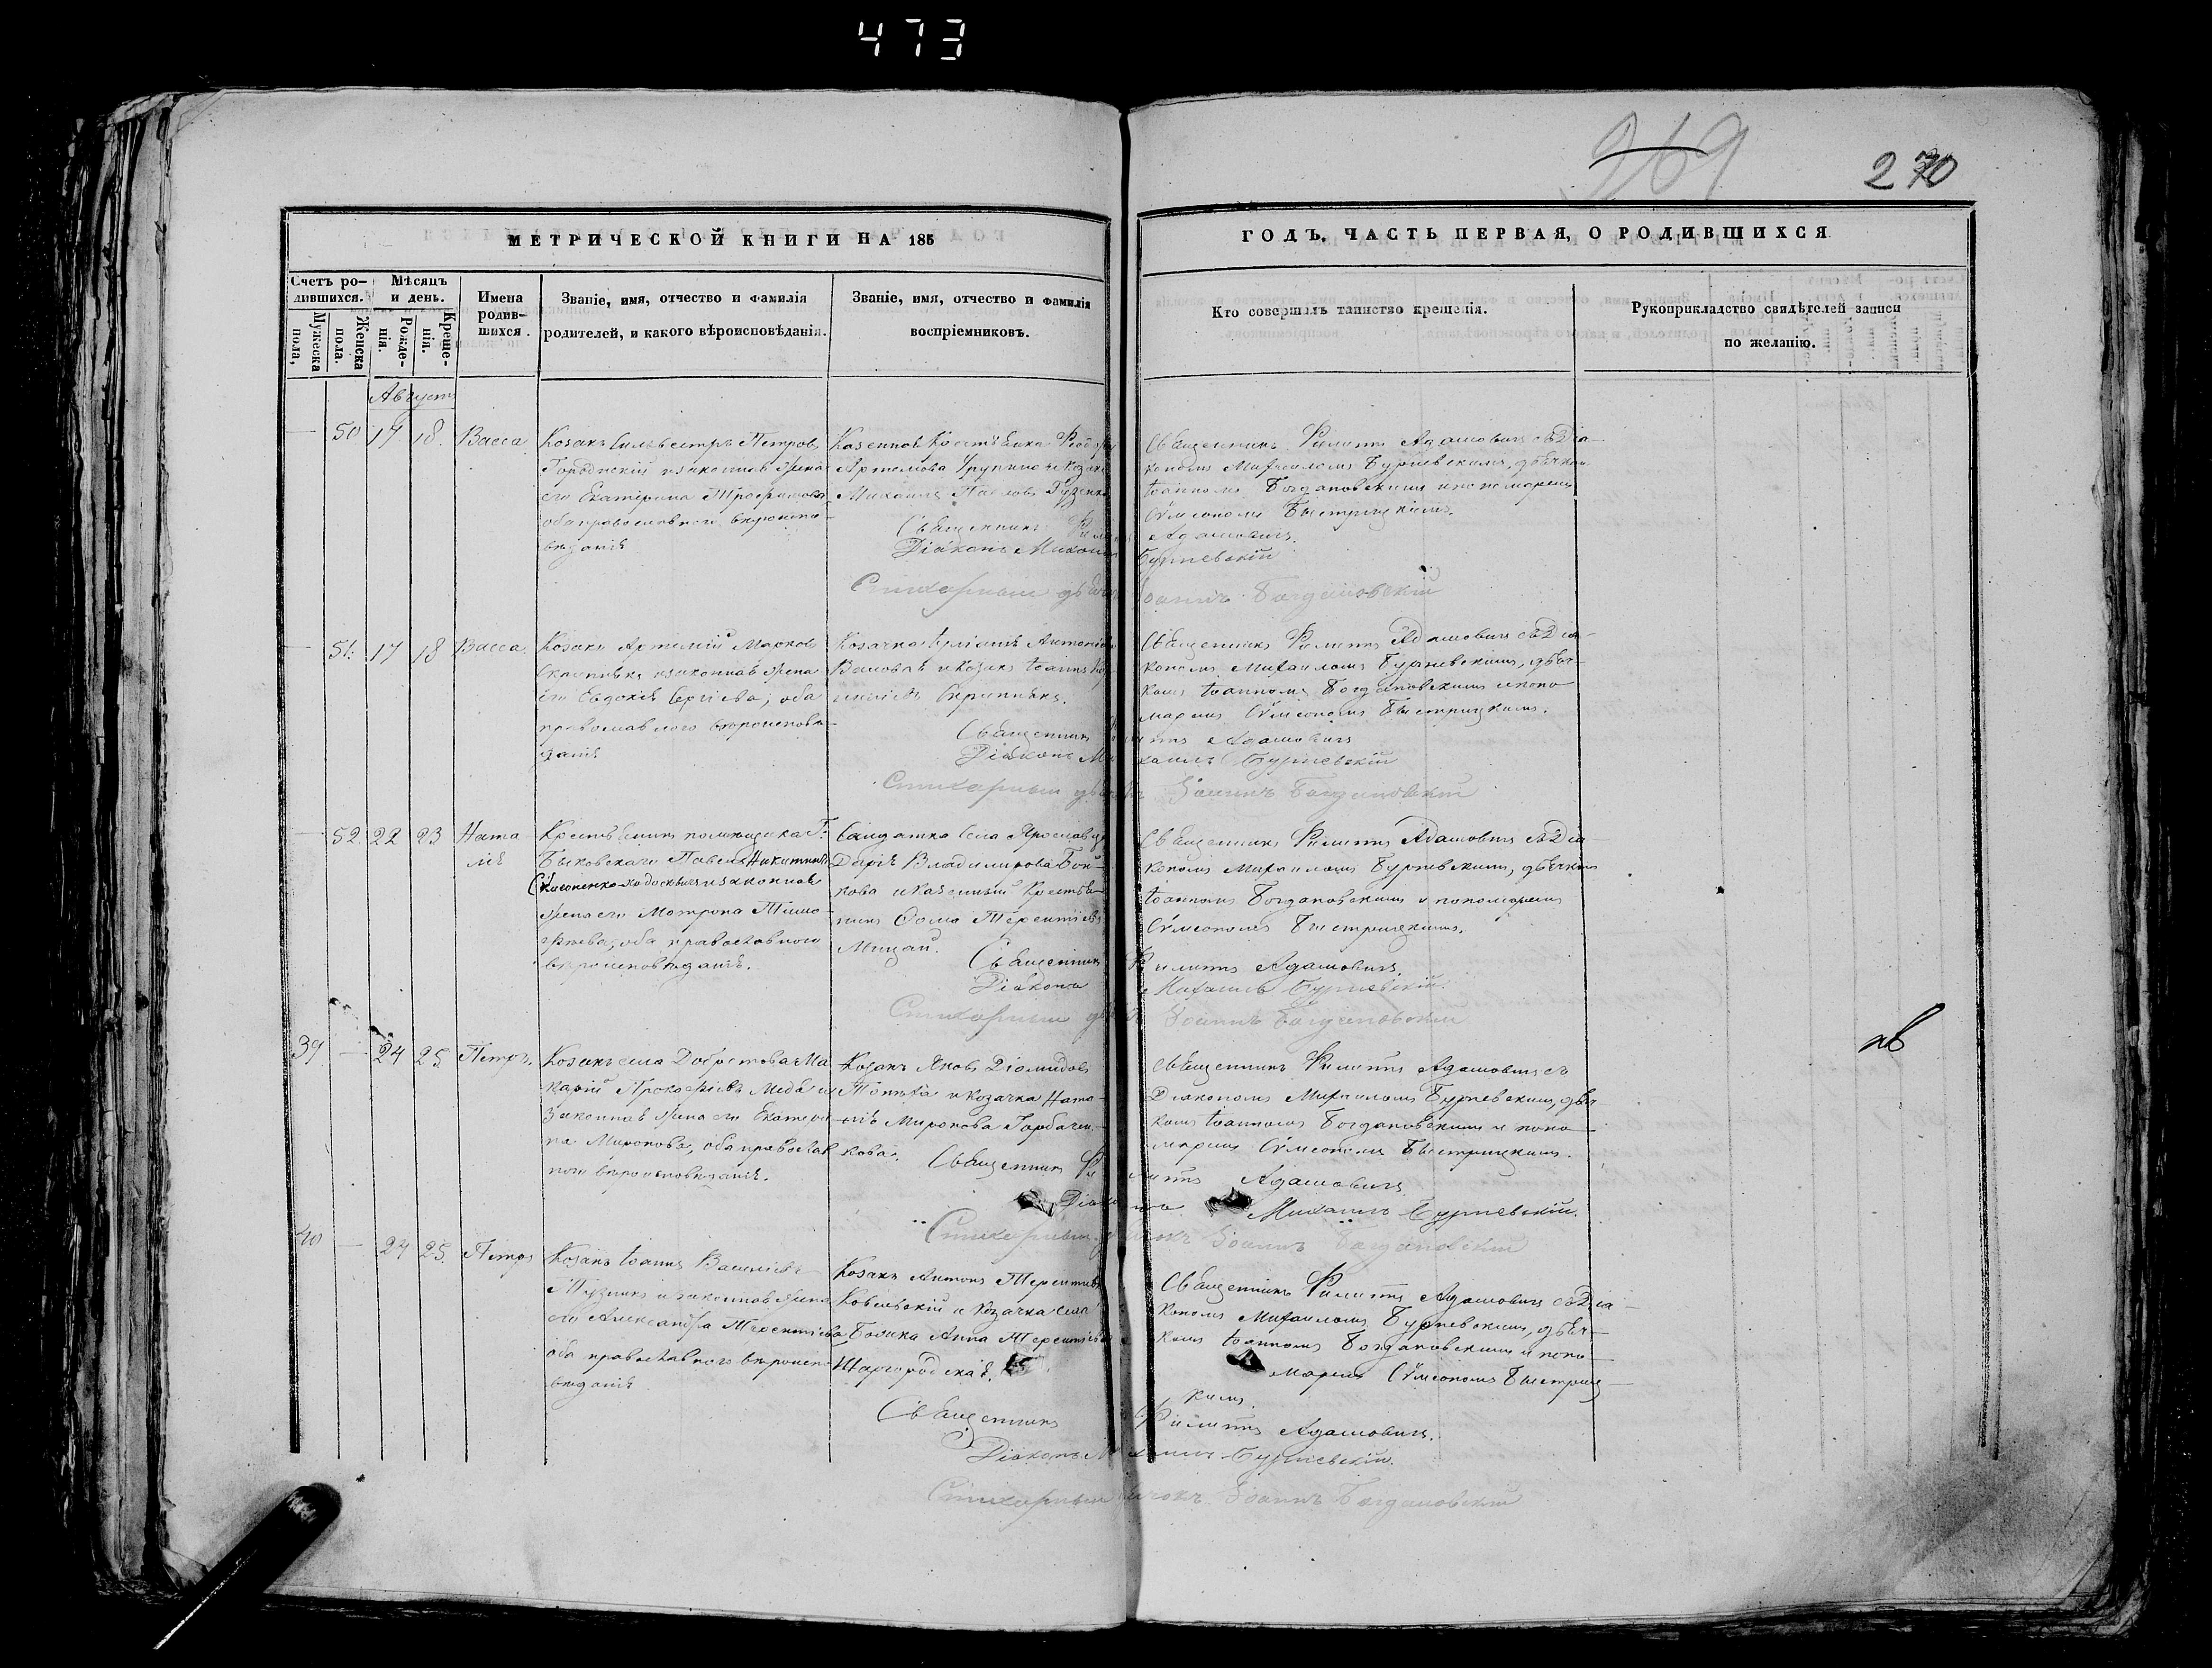 473
969
270
МЕТРИЧЕСКОЙ КНИГИ НА 185
ГОДЪ, ЧАСТЬ ПЕРВАЯ, О РОДИВШИХСЯ
Счетъ ро-
дившихся.
Мужеска
пола,
Женска
пола.
Мѣсяцъ
и день.
Рожде-
нія.
Креще-
нія.
Имена
родив-
шихся.
Званіе, имя, отчество и фамилія
родителей, и какого вѣроисповѣданія.
Званіе, имя, отчество и фамилія
воспріемниковъ.
Кто совершалъ таинство крещенія.
Рукоприкладство свидѣтелей записи
по желанію.
Августъ
50 17 18. Васса
Козакъ Сильвестръ Петровъ
Городнскій и законная жена
его Екатерина Трофимова
оба православнаго вѣроиспо-
вѣданія
Артемова и Козакъ
Михаилъ Павловъ Гузенко
Священникъ Филиппъ Адамовичъ съ Діа-
кономъ Михаиломъ Бурчевскимъ, дьячкомъ
Іоанномъ Богдановскимъ и пономаремъ
Сѵмеономъ Быстрицкимъ.
Священникъ Филиппъ Адамовичъ.
Діаконъ Михаилъ Бурчевскій
Стихарный дьячокъ Іоаннъ Богдановскій
51. 17 18 Васса.
Козакъ Артемій Марковъ
Скрипникъ и законная жена
его Евдокія Сергіева; оба
православнаго вѣроисповѣ-
данія
Козачка Іуліанія Антоніева
и Козакъ Іоаннъ
Скрипникъ.
Священникъ Филиппъ Адамовичъ съ Діа-
кономъ Михаиломъ Бурчевскимъ, дьяч-
комъ Іоанномъ Богдановскимъ и поно-
маремъ Сѵмеономъ Быстрицкимъ.
Священникъ Филиппъ Адамовичъ
Діаконъ Михаилъ Бурчевскій
Стихарный дьячокъ Іоаннъ Богдановскій
52 22 23 Ната-
лія
Крестьянинъ помѣщика Г.
Быковскаго Павелъ Никитинъ
и законная
жена его Матрона Тимо-
фѣева, оба православнаго
вѣроисповѣданія.
Солдатка села Ярославца
Дарія Владимирова Бой-
кова и казенный Крестья-
нинъ Ѳома Терентіевъ
Мицай.
Священникъ Филиппъ Адамовичъ съ Діа-
кономъ Михаиломъ Бурчевскимъ, дьячкомъ
Іоанномъ Богдановскимъ и пономаремъ
Сѵмеономъ Быстрицкимъ.
Священникъ Филиппъ Адамовичъ.
Діаконъ Михаилъ Бурчевскій.
Стихарный дьячокъ Іоаннъ Богдановскій
39 24 25 Петръ.
Козакъ села Добротова Ма-
карій Прокофіевъ и
Законная жена его Екатери-
на Миронова, оба православ-
наго вѣроисповѣданія.
Козакъ Яковъ Діомидовъ
и Козачка Ната-
лія Миронова Горбачен-
кова.
Священникъ Филиппъ Адамовичъ съ
Діакономъ Михаиломъ Бурчевскимъ, дьяч-
комъ Іоанномъ Богдановскимъ и поно-
маремъ Сѵмеономъ Быстрицкимъ.
Священникъ Филиппъ Адамовичъ
Діаконъ Михаилъ Бурчевскій.
Стихарный дьячокъ Іоаннъ Богдановскій
40 24 25. Петръ
Козакъ Іоаннъ Василіевъ
и законная жена
его Александра Терентіева
оба православнаго вѣроиспо-
вѣданія
Козакъ Антонъ Терентіевъ
Ковилевскій и Козачка села
Анна Терентіева
Шаргородская.
Священникъ Филиппъ Адамовичъ съ Діа-
кономъ Михаиломъ Бурчевскимъ, дьяч-
комъ Іоанномъ Богдановскимъ и поно-
маремъ Сѵмеономъ Быстриц-
кимъ.
Священникъ Филиппъ Адамовичъ.
Діаконъ Михаилъ Бурчевскій.
Стихарный дьячокъ Іоаннъ Богдановскій